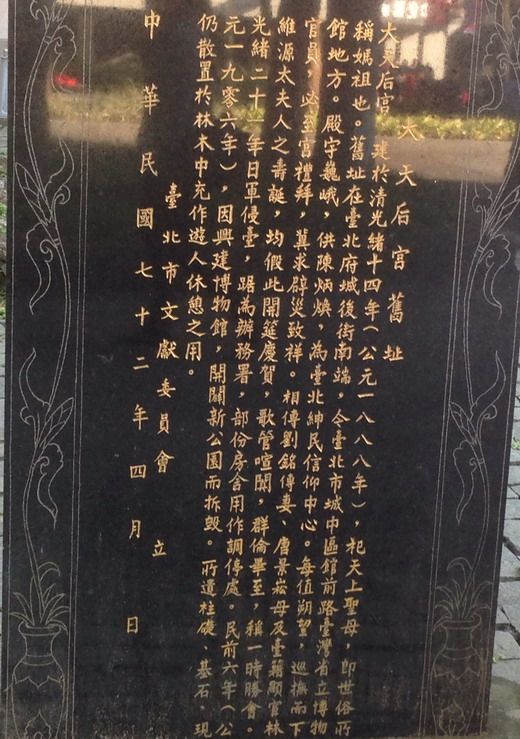 大天后宮舊址
大天后宮，建於清光緒十四年（公元一八八八年），祀天上聖母，即世俗所
稱媽祖也。舊址在臺北府城後街南端，今臺北市城中區館前路臺灣省立博物
館地方。殿宇巍峨，供陳炳煥，為臺北紳民信仰中心。每值朔望，巡撫而下
官員，必至宮禮拜，冀求辟災致祥。相傳劉銘傳妻、唐景崧母及臺籍顯宦林
維源太夫人之壽誕，均假此開筵慶賀，歌管喧闐，群倫畢至，稱一時勝會。
光緒二十一年日軍侵臺，踞為辦務署，部份房舍用作調停處。民前六年（公
元一九零六年），因興建博物館，開闢新公園而拆毀。所遺柱礎、基石，現
仍散置於林木中充作遊人休憩之用。
臺北市文獻委員會 立
中華民國七十二年四月 日